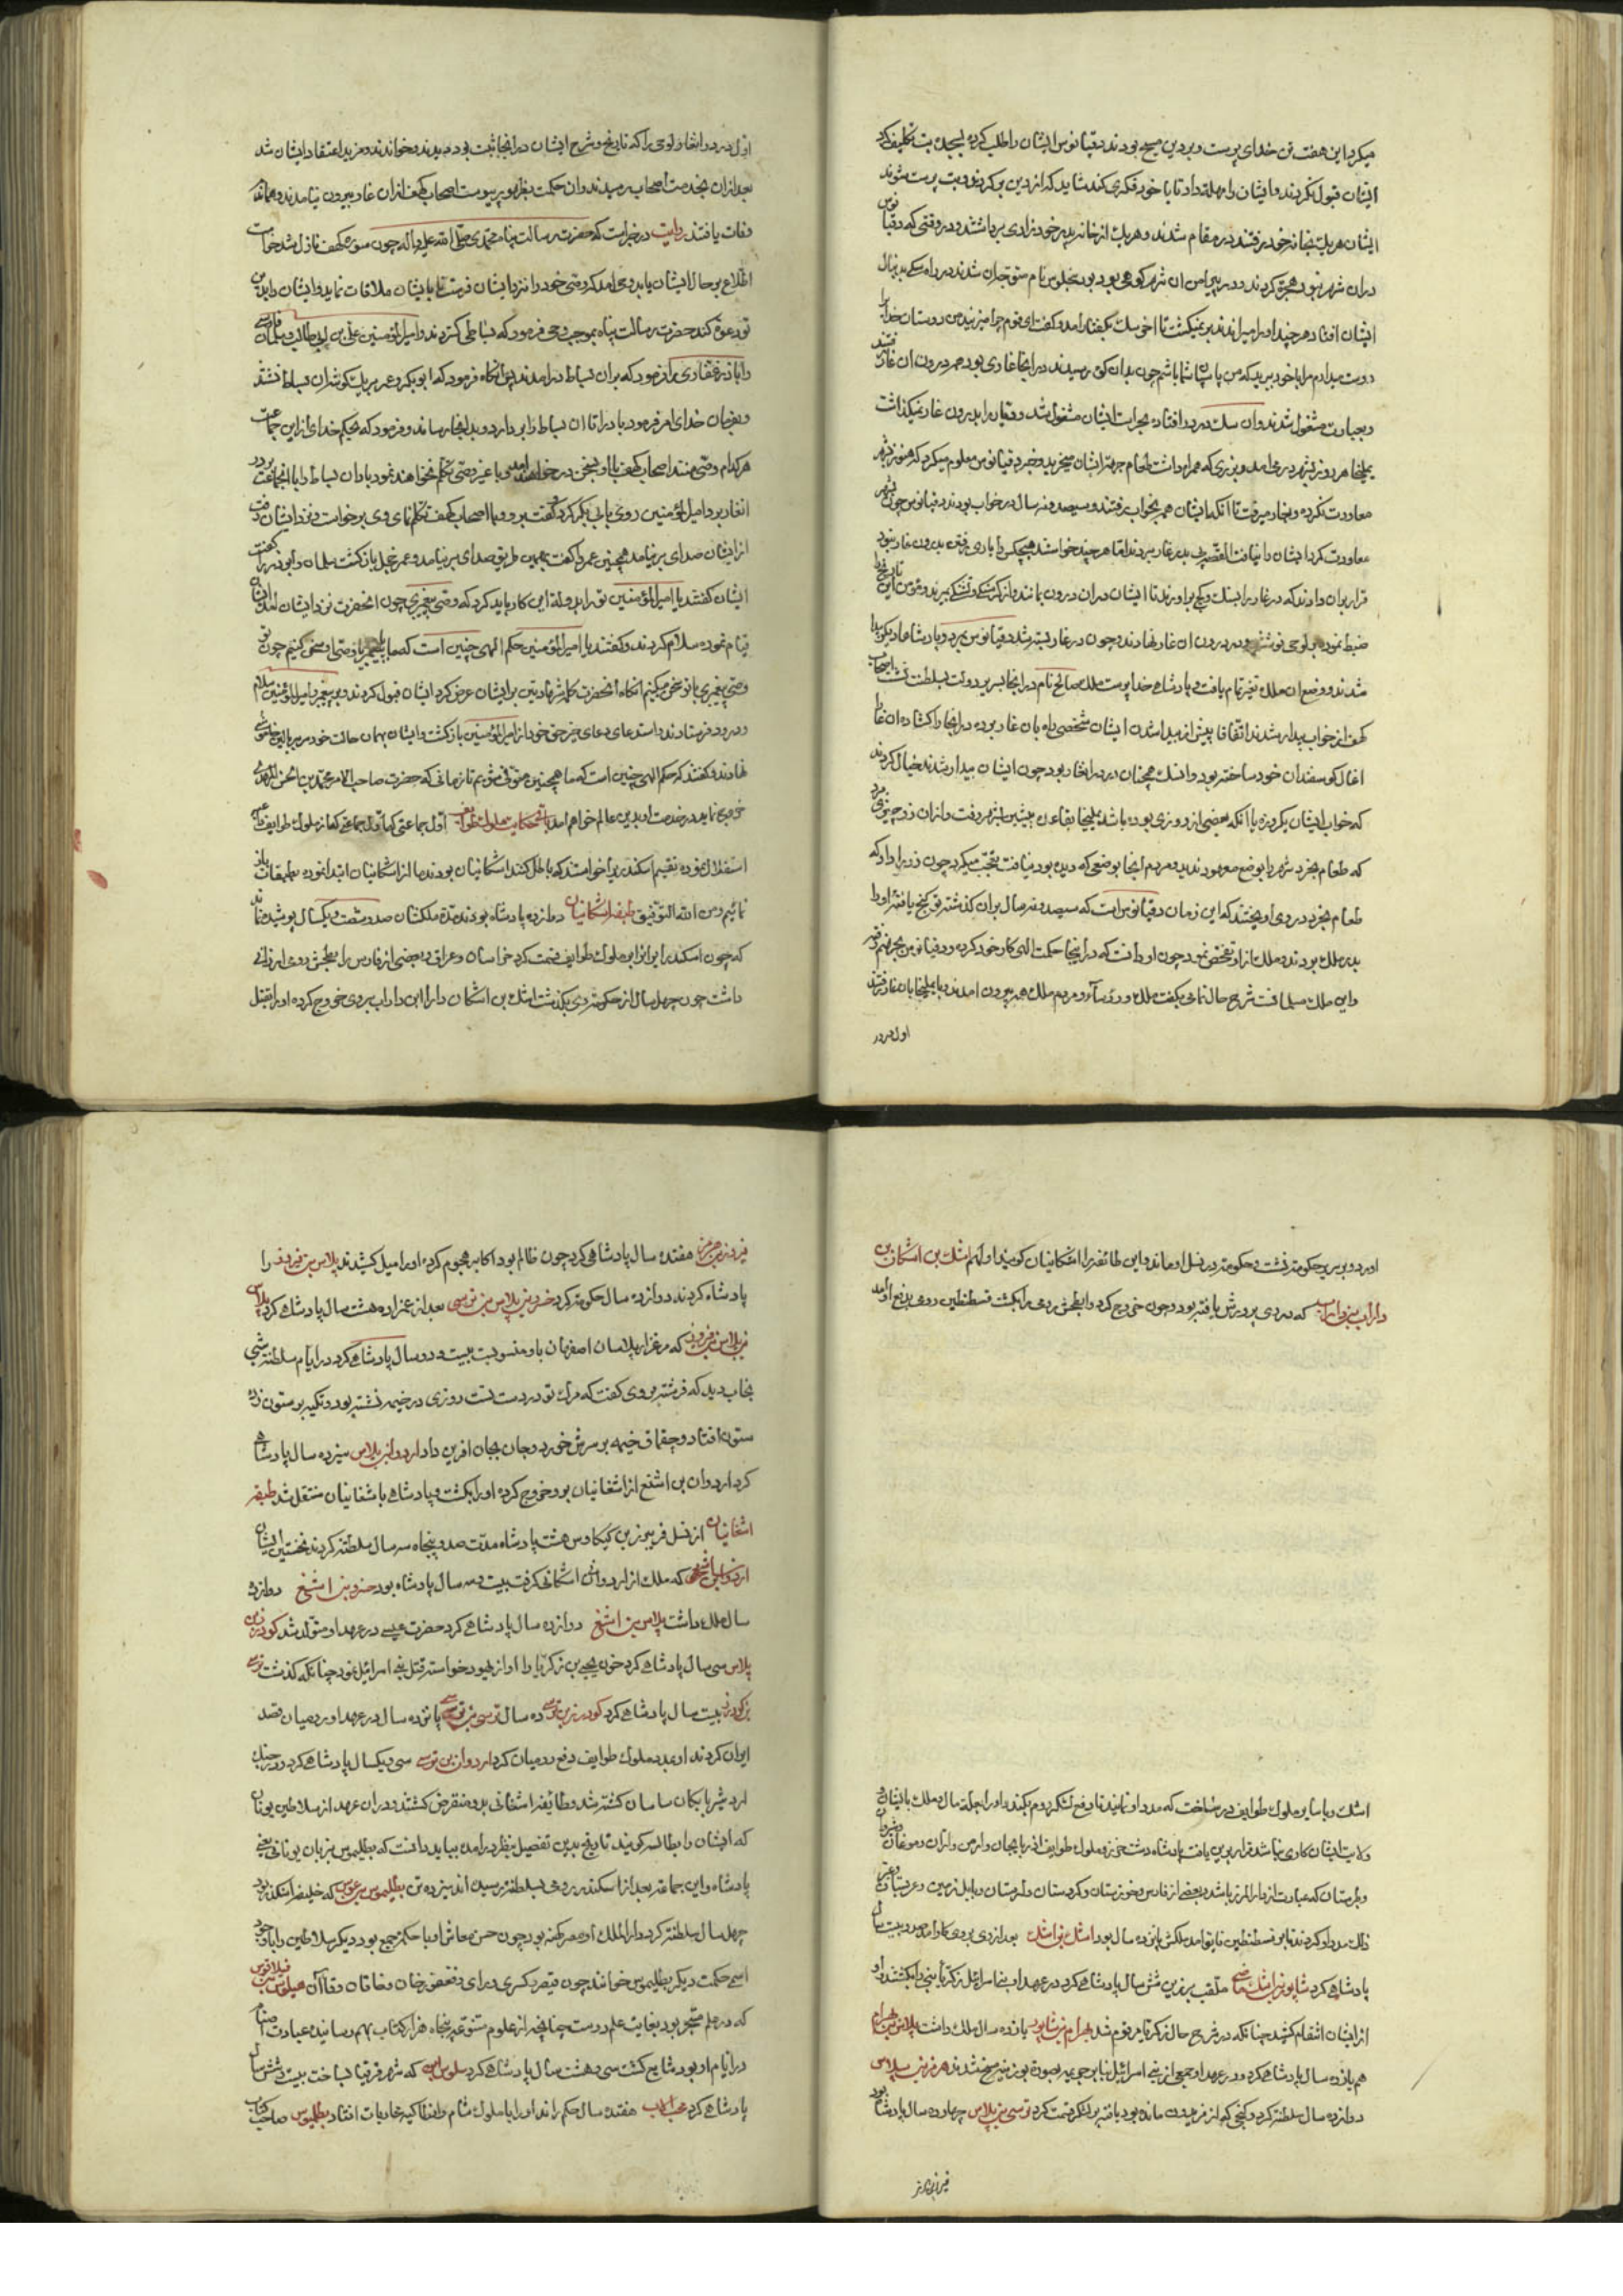 میکرد این هفت تن خدای پرست و بر دین مسیح بودند دقیانوس ایشان را طلب کرده بسجده بت تکلیف کرد
ایشان قبول نکردند و ایشان را مهلت داد تا با خود فکری کنند شاید که از دین برکردند و بت پرست شوند
ایشان هر یک بخانه خود رفتند در مقام شدند و هر یک از خانه پدر خود زادی برداشتند و در وقتی که دقیانوس
در ان شهر نبود هجرة کردند و در پیرامن ان شهر کوهی بود بنجلوس نام متوجه ان شدند در راه سکی بدنبال
ایشان افتاد هر چند او را میراندند بر نمیکشت تا اخر سک بکفتار امد و کفت ای قوم چرا میزنید من دوستان خدا را
دوست میدارم مرا با خود ببرید که من پاسبان شما باشم چون بدان کوه رسیدند در انجا غاری بود همه در درون ان غار رفتند
و بعبادت مشغول شدند و ان سک در در افتاده بحراست ایشان مشغول شد و دقیانوس را بدرون غار نمیکذاشت
یملیخا هر روز بشهر در می امد و بزری که همراه داشت طعام جهة ایشان میخرید و خبر دقیانوس معلوم میکرد که هنوز بشهر
معاودت نکرده و بغار میرفت تا انکه ایشان همه بخواب رفتند و سیصد و نه سال در خواب بودند دقیانوس چون بشهر
معاودت کرد ایشان را نیافت القصه پی بدر غار بردند اما هر چند خواستند هیچکس را یارای رفتن بدرون غار نبود
قرار بران دادند که در غار را بسنک و کچ براورند تا ایشان در ان درون بمانند و از کرسنکی و تشنکی بمیرند و مؤمن این تاریخ را
ضبط نموده بر لوحی نوشته و در درون ان غار نهادند و چون در غار بسته شد دقیانوس بمرد و پادشاهان دیکر پیدا
شدند و وضع ان ملک تغیر تمام یافت و پادشاه خدا پرست ملک صالح نام در انجا بسریر دولت و سلطنت نشست اصحاب
کهف از خواب بیدار شدند اتفاقا پیش از بیدار شدن ایشان شخصی راه بان غار برده در انجا را کشاده ان غار را
اغال کوسفندان خود ساخته بود و ان سک همچنان در در ان غار بود چون ایشان بیدار شدند خیال کردند
که خواب ایشان یکروزه یا انکه بعضی از روزی بوده باشد یملیخا بقاعده پیشین بشهر رفت و از ان زر چیزی برد
که طعام بخرد شهر را بوضع معهود ندید و مردم انجا بوضعی که دیده بود نیافت تعجب میکرد چون زر را داد که
طعام بخرد در وی اویختند که این زمان دقیانوس است که سیصد و نه سال بران کذشته تو کنج یافته او را
بدر ملک بردند و ملک از او تفحص نمود چون او دانست که در اینجا حکمت الهی کار خود کرده و دقیانوس بجهنم رفته
و این ملک مسلمانست شرح حال تمامی بکفت ملک و رؤساء و مردم ملک همه بیرون امدند و با یملیخا بان غار رفتند
اول در در
اول در در ان غار لوحی را که تاریخ و شرح ایشان در انجا ثبت بود دیدند و خواندند و مزید اعتقاد ایشان شد
بعد از ان بخدمت اصحاب رسیدند و ان حکمت بظهور پیوست اصحاب کهف از ان غار بیرون نیامدند و همانجا
وفات یافتند روایت در خبر است که حضرت رسالت پناه محمدی صلی الله علیه و اله چون سوره کهف نازل شد خواست
اطلاع بر حال ایشان یابد وحی امد که وصی خود را نزد ایشان فرست تا با ایشان ملاقات نماید و ایشان را بدین
تو دعوة کند حضرت رسالت پناه بموجب وحی فرمود که بساطی کستردند و امیر المؤمنین علی بن ابی طالب و سلمان فارسی
و اباذر غفاری را فرمود که بران بساط درامدند پس انکاه فرمود که ابوبکر و عمر بر یک کوشه ان بساط نشستند
و بفرمان خدای امر فرمود باد را تا ان بساط را بردارد و بدانجا رساند و فرمود که بحکم خدای از این جماعت
هر کدام وصی منند اصحاب کهف با او بسخن درخواهند امد و با غیر وصی تکلم نخواهند نمود باد ان بساط را با انجماعت بر در
انغار برد امیر المؤمنین روی بابی بکر کرد کفت برو و با اصحاب کهف تکلم نمای وی برخواست و نزد ایشان رفت
از ایشان صدای بر نیامد همچنین عمر را کفت بهمین طریق صدای بر نیامد و عمر خجل بازکشت سلمان و ابوذر را کفت
ایشان کفتند یا امیر المؤمنین تو را بدولة این کار باید کرد که وصی پیغمبری چون انحضرت نزد ایشان امد ایشان
قیام نموده سلام کردند و کفتند یا امیر المؤمنین حکم الهی چنین است که ما با پیغمبر یا وصی او سخن کنیم چون تو
وصی پیغمبری با تو سخن میکنیم انکاه انحضرت کلمه شهادتین بر ایشان عرض کرد ایشان قبول کردند و بر پیغمبر و امیر المؤمنین سلام
و درود فرستادند و استدعای دعای خیر حق خود از امیر المؤمنین بازکشت و ایشان بهمان حالت خود سر ببالین خاموشی
نهادند و کفتند که حکم الهی چنین است که ما همچنین متوفی شویم تا زمانی که حضرت صاحب الامر محمد بن الحسن المهدی
خروج نماید در خدمت او بدین عالم خواهیم امد تتمه حکایت ملوک طوایف اول جماعتی که از ملوک طوایف
استقلال نموده تقسیم اسکندر را خواستند که باطل کنند اشکانیان بودند ما از اشکانیان ابتدا نموده بطبقات باز
نمائیم و من الله التوفیق طبقه اشکانیان دوازده پادشاه بودند مدة ملکشان صد و شصت و یکسال پوشیده نماند
که چون اسکندر ایران را بر ملوک طوایف قسمت کرد خراسان و عراق و بعضی از فارس را بطحش رومی ارزانی
داشت چون چهل سال از حکومة وی بکذشت اشک بن اشکان دارا ابن داراب بر وی خروج کرده او را بقتل
اورد و بر سریر حکومة نشست و حکومة در نسل او ماند و این طائفه را اشکانیان کویند اولهم اشک بن اشکان بن
داراب بن داراب که در ری پرورش یافته بود و چون خروج کرد و ابطحش رومی را بکشت قسطنطین رومی بدفع او امد
اشک با سایر ملوک طوایف در ساخت که مدد او نمایند تا دفع لشکر روم بکند و او را بجهة مال و ملک با ایشان و
ولایت ایشان کاری نباشد قرار برین یافت پادشاه دشت خزر و ملوک طوایف اذربایجان و ارمن و اران و موغان و شیروان
و طبرستان که عبارت از دارالمرز باشد و بعضی از فارس و خوزستان و کردستان و لرستان و بابل زمین و عربستان و غیر
ذلک مدد او کردند تا بر قسطنطین تا بتوامد ملکش پانزده سال بود اشک بن اشک بعد از وی بر وی کار امد صد و بیست سال
پادشاهی کرد شاپور بن اشک ملقب بزرین شش سال پادشاهی کرد در عهد او بنی اسرائیل زکریا نبی را بکشتند و او
از ایشان انتقام کشید چنانکه در شرح حال زکریا مرقوم شد بهرام بن شاپور یازده سال ملک داشت پلاس بن بهرام
هم یازده سال پادشاهی کرد و در عهد او جمعی از بنی اسرائیل بنا بر جریمه بصورة بوزینه مسخ شدند هرمز بن پلاس
دوازده سال سلطنة کرد و کنجی که از فریدون مانده بود یافته بر لشکر قسمت کرد نرسی بن پلاس چهارده سال پادشاه بود
فیروز بن هرمز
فیروز بن هرمز هفده سال پادشاهی کرد چون ظالم بود اکابر هجوم کرده او را میل کشیدند پلاس بن فیروز را
پادشاه کردند دوازده سال حکومة کرد خسرو بن پلاس بن نرسی بعد از عمزاده هشت سال پادشاهی کرد پلاس
بن پلاس بن فیروز که مرغزار پلاسان اصفهان باو منسوبست بیست و دو سال پادشاهی کرد در ایام سلطنة شبی
بخواب دید که فرشته بروی کفت که مرک تو در دست تست روزی در خیمه نشسته بود و تکیه بر ستون زد
ستون افتاد و چقماق خیمه بر سرش خورد و جان بجان افرین داد اردوان بن پلاس سیزده سال پادشاهی
کرد اردوان بن اشغ از اشغانیان برو خروج کرده او را بکشت و پادشاهی باشغانیان منتقل شد طبقه
اشغانیان از نسل فریبرز بن کیکاوس هشت پادشاه مدت صد و پنجاه سه سال سلطنة کردند نخستین ایشان
اردوان بن اشغ که ملک از اردوان اشکانی کرفت بیست و سه سال پادشاه بود خسرو بن اشغ دوازده
سال ملک داشت پلاس بن اشغ دوازده سال پادشاهی کرد حضرت عیسی در عهد او متولد شد کودرز بن
پلاس سی سال پادشاهی کرد خون یحیی بن زکریا را او از یهود خواسته قتل بنی اسرائیل نمود چنانکه کذشت نرسی
بن کودرز بیست سال پادشاهی کرد کودرز بن نرسی ده سال نرسی بن نرسی پانزده سال در عهد او رومیان قصد
ایران کردند او بمدد ملوک طوایف دفع رومیان کرد اردوان بن نرسی سی و یکسال پادشاهی کرد و در جنک
اردشیر بابکان ساسان کشته شد و طائفه اشغانی برو منقرض کشتند و در ان عهد از سلاطین یونان
که ایشان را بطالسه کویند تاریخ بدین تفصیل بنظر درامده بباید دانست که بطلیموس بزبان یونانی یعنی
پادشاه و این جماعة بعد از اسکندر رومی بسلطنة رسیده اند سیزده تن بطلیموس بن که خلیفه اسکندر بود
چهل سال سلطنة کرد و دارالملک او مصر کهنه بود چون حسن معاش او با حکمة جمع بود دیکر سلاطین را با وجود
اسم حکمت دیکر بطلیموس خوانند چون قیصر و کسری و رای و فغفور و خان و خاقان و قاآن فیلاقوس
که در علم متبحر بود بغایت علم دوست چنانچه از علوم متنوعه پنجاه هزار کتاب بهم رسانیده عبادت اصنام
در ایام او بود شایع کشت سی و هشت سال پادشاهی کرد که شهر قرقیا بساخت بیست و شش سال
پادشاهی کرد هفده سال حکم راند او را با ملوک شام و انطاکیه محاربات افتاد بطلیموس صاحب کتاب